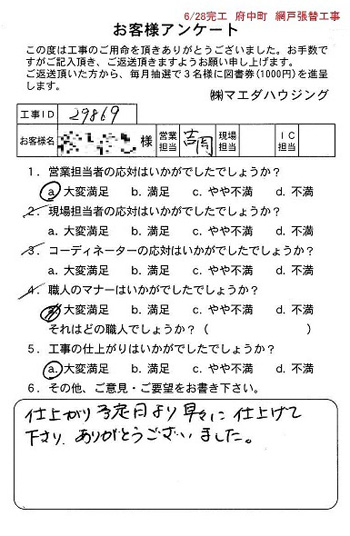 6/28完工 府中町 網戸張替工事
お客様アンケート
この度は工事のご用命を頂きありがとうございました。お手数で
すがご記入頂き、ご返送頂きますようお願い申し上げます。
ご返送頂いた方から、毎月抽選で3名様に図書券(1000円)を進呈
します。
㈱マエダハウジング
工事ID 29869
お客様名 様 営業担当 吉岡 現場担当 IC担当
1．営業担当者の応対はいかがでしたでしょうか？
a. 大変満足 b. 満足 c. やや不満 d. 不満
2．現場担当者の応対はいかがでしたでしょうか？
a. 大変満足 b. 満足 c. やや不満 d. 不満
3．コーディネーターの応対はいかがでしたでしょうか？
a. 大変満足 b. 満足 c. やや不満 d. 不満
4．職人のマナーはいかがでしたでしょうか？
a. 大変満足 b. 満足 c. やや不満 d. 不満
それはどの職人でしょうか？（ ）
5．工事の仕上がりはいかがでしたでしょうか？
a. 大変満足 b. 満足 c. やや不満 d. 不満
6．その他、ご意見・ご要望をお書き下さい。
仕上がり予定日より早々に仕上げて
下さり、ありがとうございました。